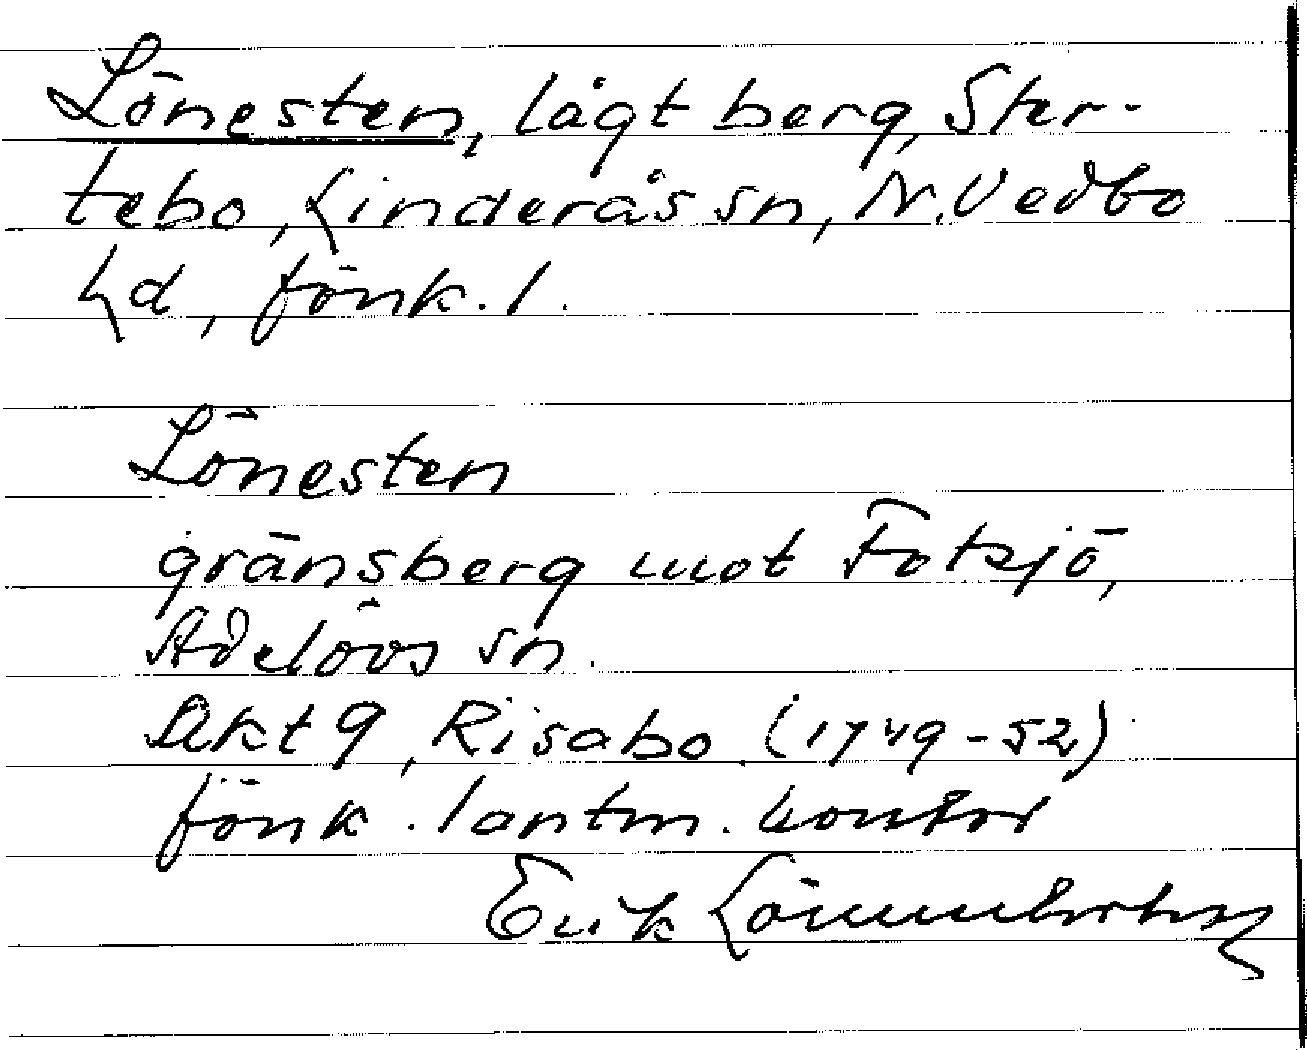 Lönesten, lågt berg, Ster-
tebo, Linderås sn, N. Vedbo
hd, Jönk. l.
Lönesten
gränsberg mot Fotsjö,
Adelövs sn.
Akt 9, Risabo. (1749-52)
Jönk. lantm. kontor
Erik